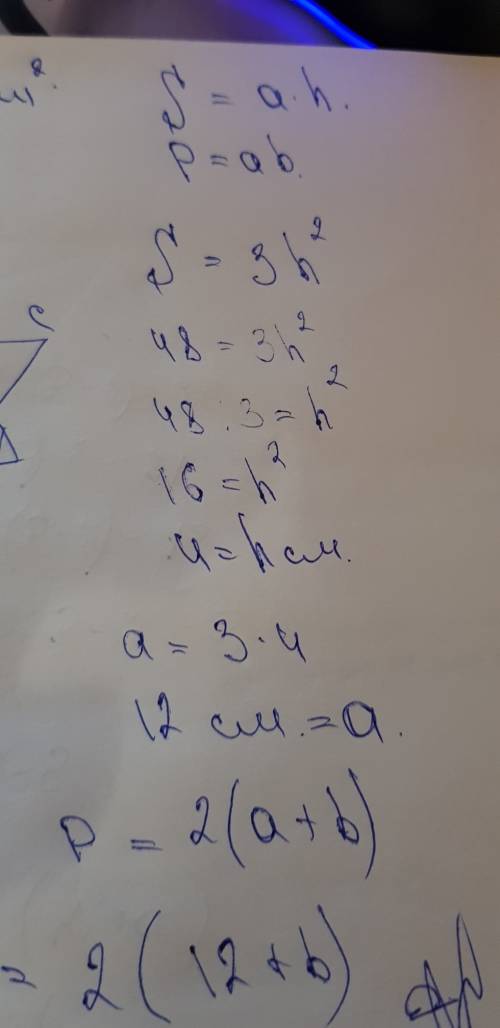 м².
S = a · h.
P = ab.
S = 3h²
48 = 3h²
C
48 : 3 = h²
16 = h²
4 = h см.
a = 3 · 4
12 см. = a.
P = 2(a + b)
= 2(12 + b)